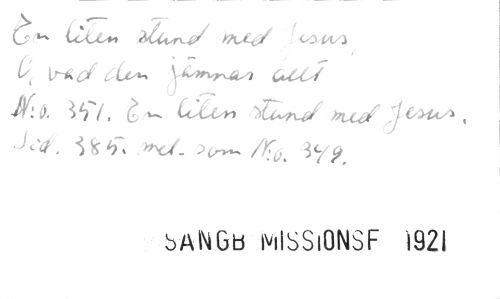 En liten stund med Jesus,
O, vad den jämnas allt
N:o. 351. En liten stund med Jesus.
Sid. 385. mel. som N:o. 349.
SANGB MISSIONSF 1921